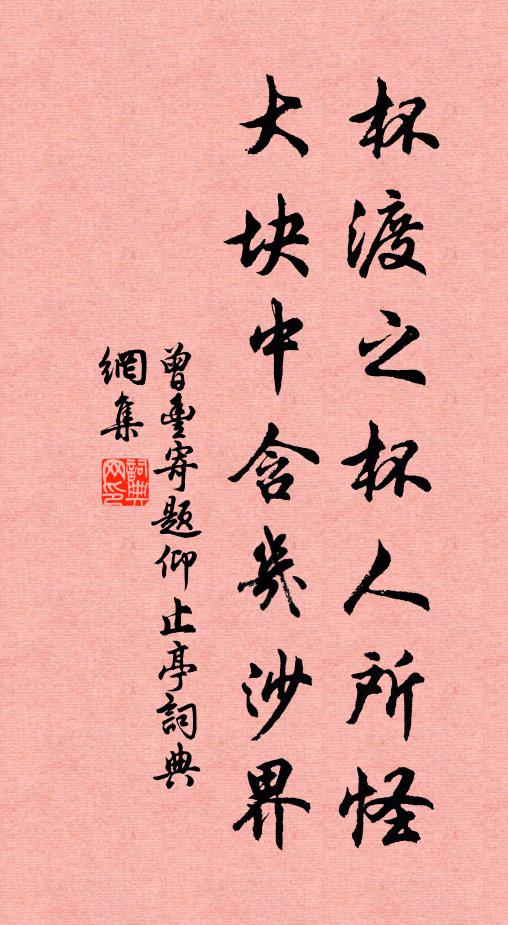 杯渡之杯人所怪
大块中含几沙界
曾豊寄题仰止亭詞典
網集
詞典网印